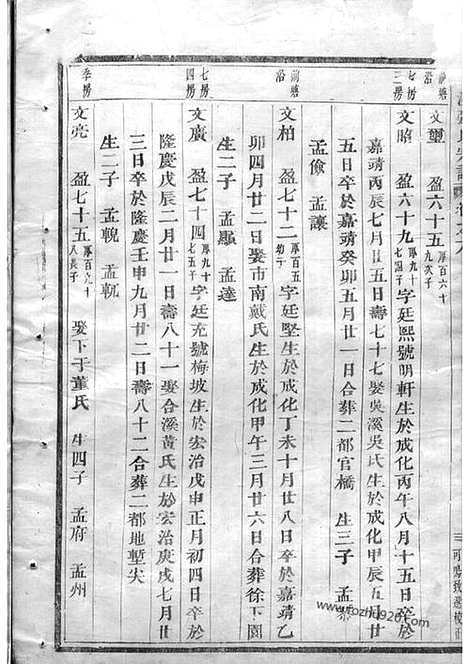 前塘
沿
文璽 盈六十五 厚百六十九次子
七房
三房
文昭 盈六十九 厚九十七 字廷熙號明軒生於成化丙午八月十五日卒於
嘉靖丙辰七月廿五日壽七十七娶吳溪吳氏生於成化甲辰五月廿
五日卒於嘉靖癸卯五月廿一日合葬二都官橋 生三子 孟
孟儉 孟讓
前塘
沿
文柏 盈七十二 厚百五 幼子 字廷堅生於成化丁未十月廿八日卒於嘉靖乙
卯四月廿二日娶市南戴氏生於成化甲午三月廿六日合葬徐下園
生二子 孟顯 孟達
七房
四房
文廣 盈七十四 厚九十七五子 字廷充號梅坡生於宏治戊申正月初四日卒於
隆慶戊辰二月廿一日壽八十一娶合溪黃氏生於宏治庚戌七月廿
三日卒於隆慶壬申九月廿二日壽八十二合葬二都地塹尖
生二子 孟輗 孟軏
季房
文亮 盈七十五 厚百九十八長子 娶下于董氏 生四子 孟府 孟州